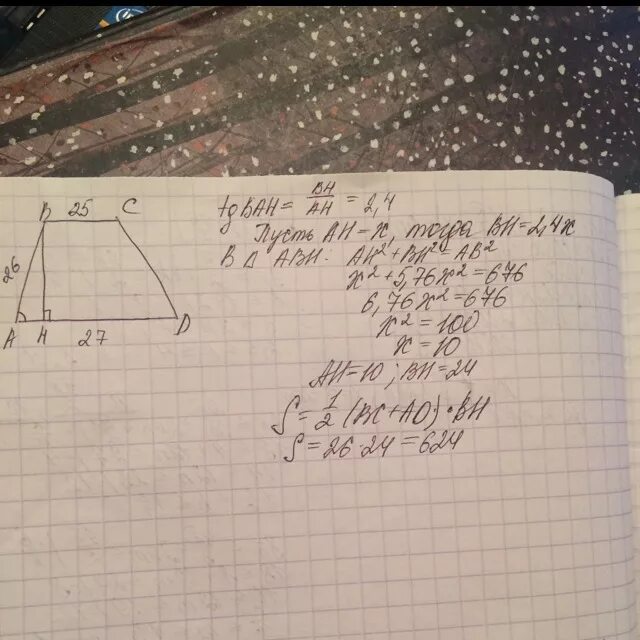 B 25 C
26
A H 27 D
tgBAH = BH/AH = 2,4
Пусть AH = x, тогда BH = 2,4x
В Δ ABH: AH² + BH² = AB²
x² + 5,76x² = 676
6,76x² = 676
x² = 100
x = 10
AH = 10; BH = 24
S = 1/2 (BC + AD) · BH
S = 26 · 24 = 624